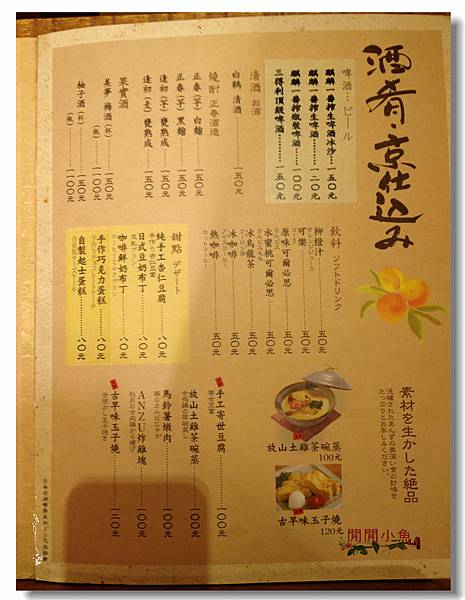 酒肴・京仕込み
啤酒…ビール
麒麟一番搾生啤酒冰沙……一五〇元
麒麟一番搾生啤酒……一二〇元
麒麟一番搾瓶裝啤酒……一〇〇元
三得利頂級啤酒……一五〇元
清酒 お酒
白鶴 清酒……一五〇元
燒酎 正春酒造
正春(芋)白麹……一五〇元
正春(芋)黑麹……一五〇元
逢初(芋)甕熟成……一五〇元
逢初(麦)甕熟成……一五〇元
果實酒
美夢 梅酒(杯)
柚子酒(杯)
飲料 ソフトドリンク
柳橙汁……五〇元
可樂……五〇元
原味可爾必思……五〇元
水蜜桃可爾必思……五〇元
冰烏龍茶……五〇元
冰咖啡……五〇元
熱咖啡……五〇元
甜點 デザート
純手工杏仁豆腐……八〇元
日式豆奶布丁……八〇元
咖啡鮮奶布丁……八〇元
手作巧克力蛋糕……八〇元
自製起士蛋糕……八〇元
素材を生かした絶品
洗練されたあんずの奥深い食の妙味を
たっぷりとお楽しみください。
放山土雞茶碗蒸
100元
古早味玉子燒
120元
手工寄世豆腐……一〇〇元
放山土雞茶碗蒸……一〇〇元
馬鈴薯燉肉……一〇〇元
ANZU炸雞塊……一〇〇元
古早味玉子燒……一二〇元
閒閒小魚